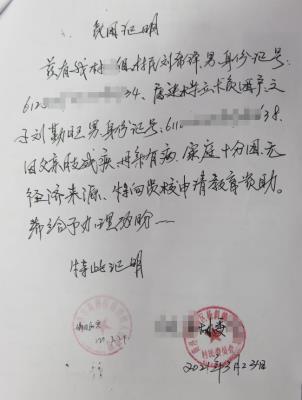 贫困证明
兹有我村 组村民刘希泽男身份证号:
6120 34、属建档立卡贫困户,之
子刘勤 男身份证号:6110 38,
因父亲肢残疾 母亲有病,家庭十分困,无
经济来源、特向贵校申请教育资助。
希给予办理为盼——
特此证明
情况属实
村委
村民委员会
2021年3月23日